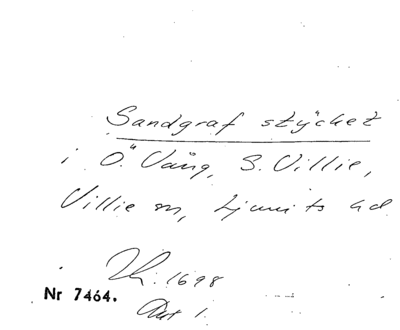 Sandgraf stÿcket
i Ö. Vång, S. Villie,
Villie sn, Ljunits hd
1698
Nr 7464.
Akt 1.